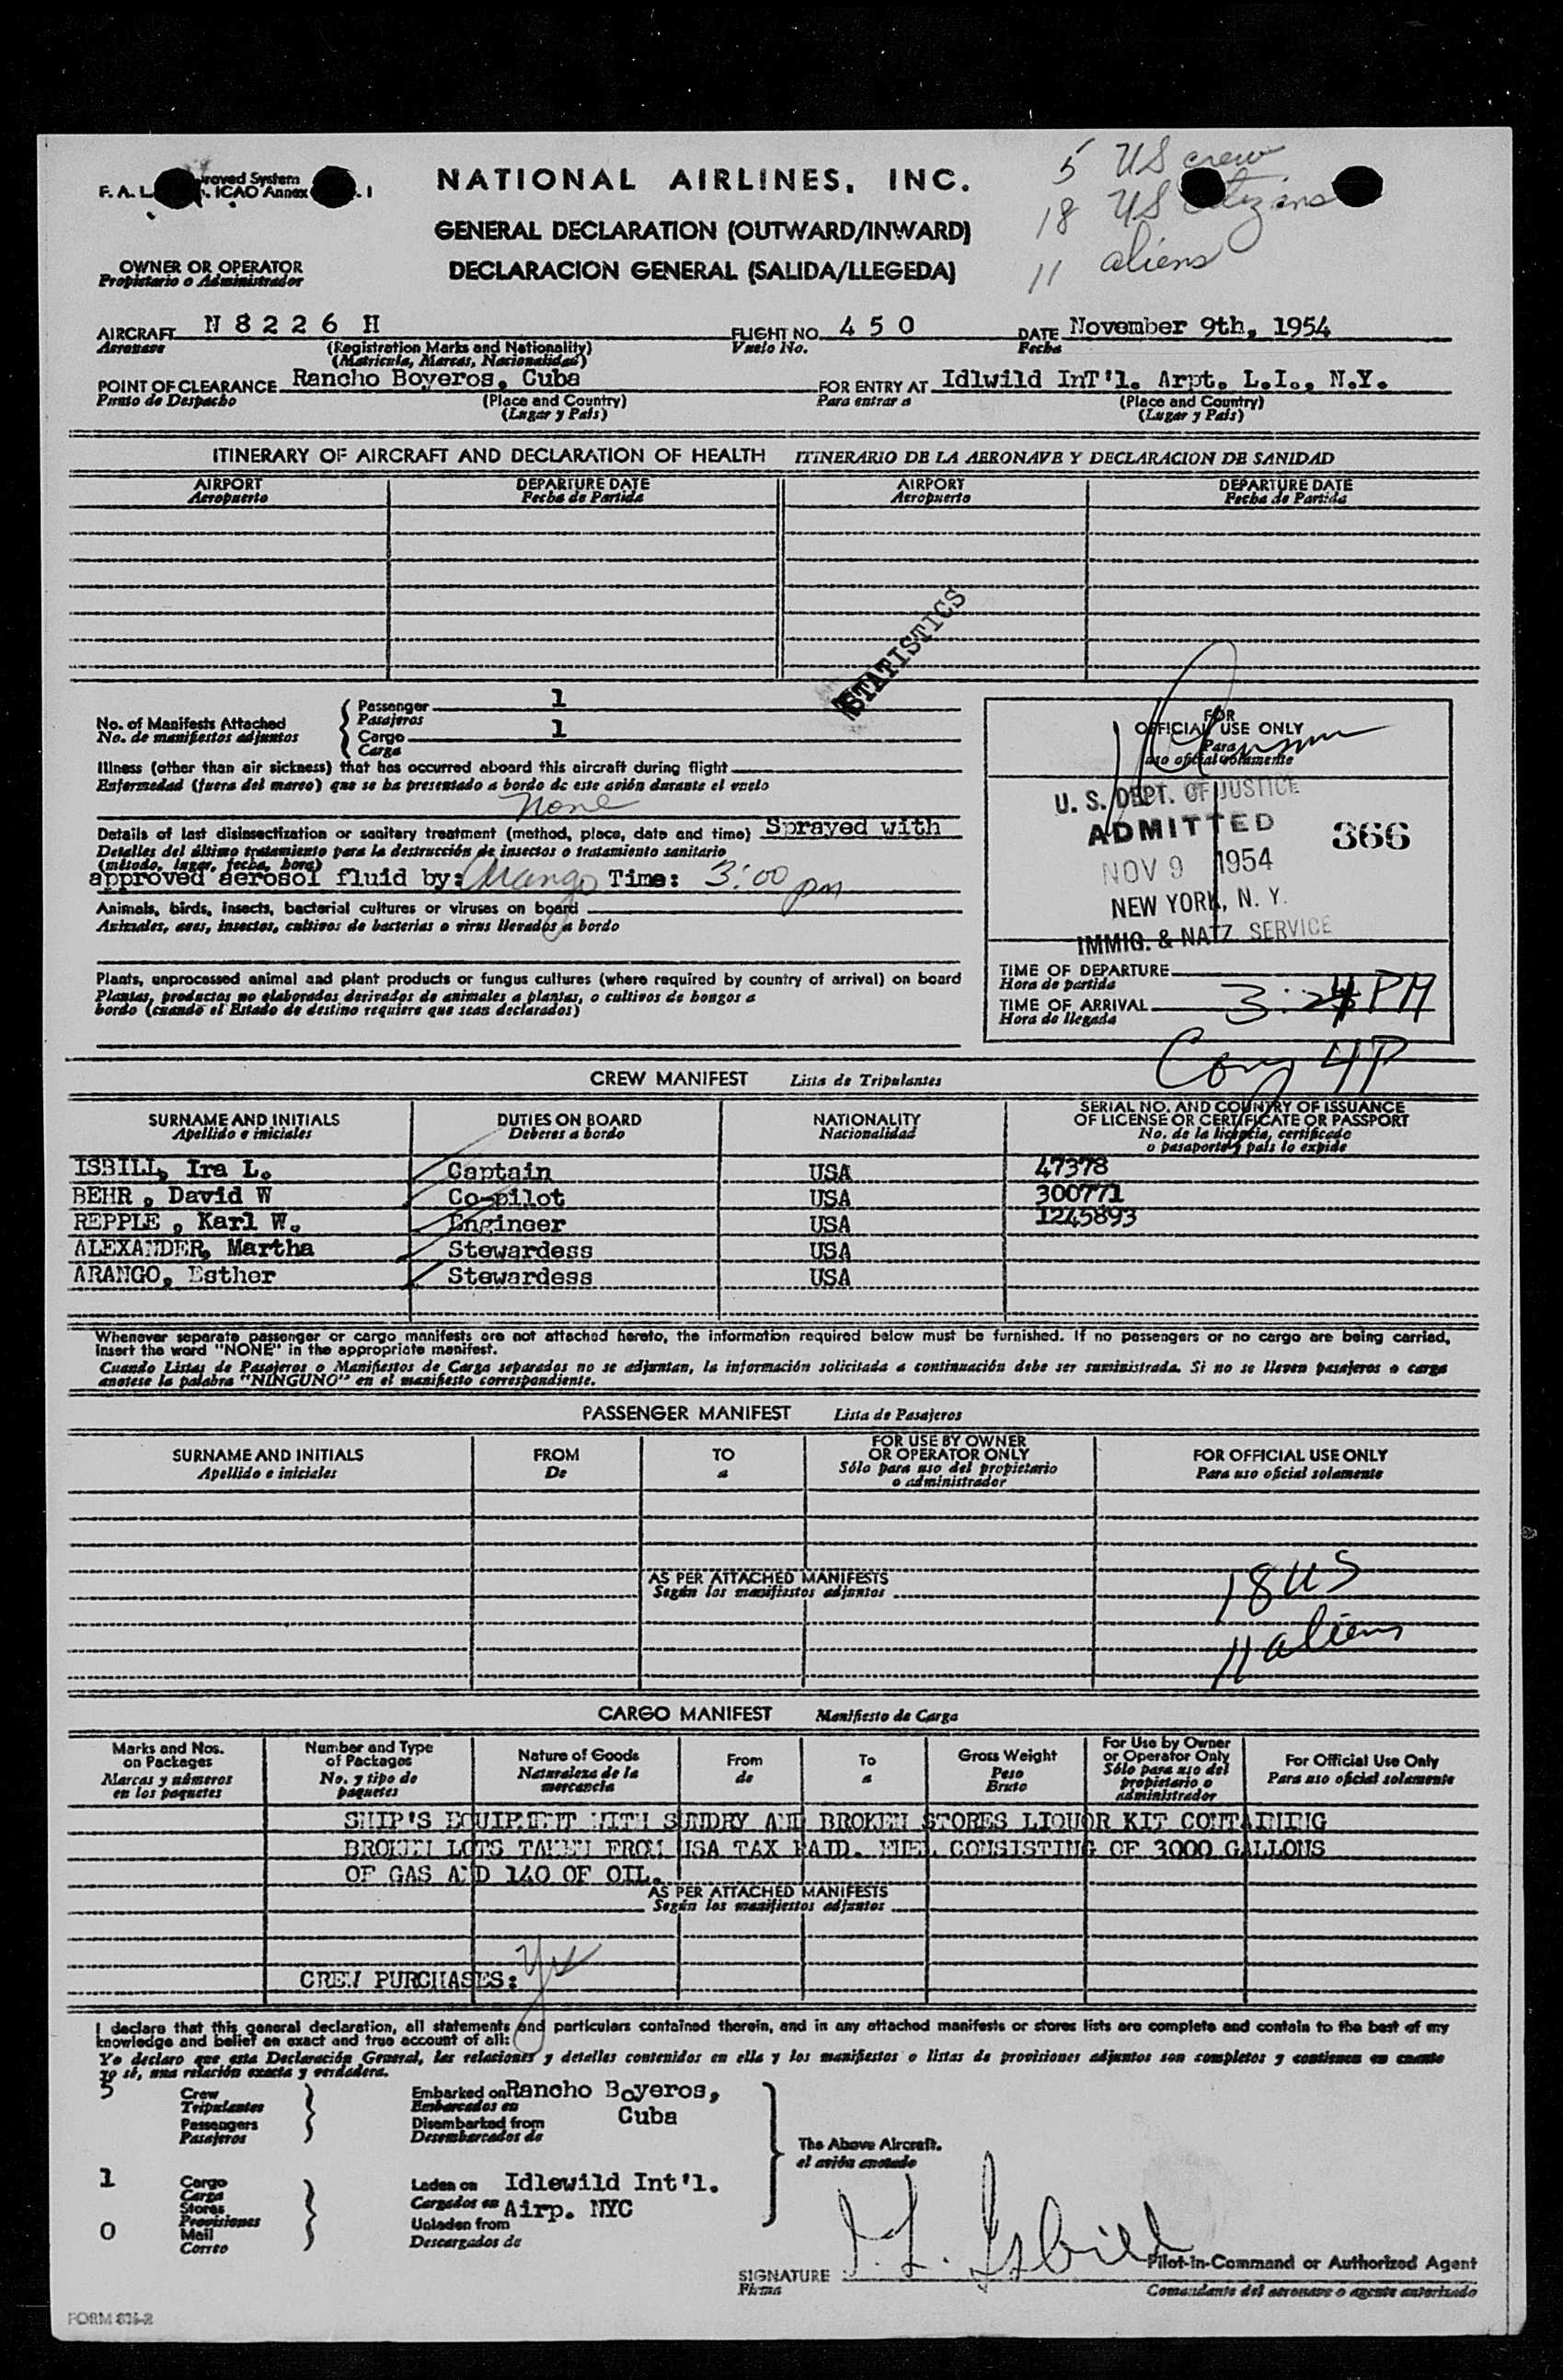 5 US crew
18 US citizens
11 aliens
F. A. L. roved System
ICAO Annex I
NATIONAL AIRLINES, INC.
GENERAL DECLARATION (OUTWARD/INWARD)
DECLARACION GENERAL (SALIDA/LLEGEDA)
OWNER OR OPERATOR
Propietario o Administrador
AIRCRAFT N 8 2 2 6 H FLIGHT NO. 4 5 0 DATE November 9th, 1954
Aeronave (Registration Marks and Nationality) Vuelo No. Fecha
(Matricula, Marcas, Nacionalidad)
POINT OF CLEARANCE Rancho Boyeros, Cuba FOR ENTRY AT Idlwild InT'l. Arpt. L.I., N.Y.
Punto de Despacho (Place and Country) Para entrar a (Place and Country)
(Lugar y País) (Lugar y País)
ITINERARY OF AIRCRAFT AND DECLARATION OF HEALTH ITINERARIO DE LA AERONAVE Y DECLARACION DE SANIDAD
AIRPORT DEPARTURE DATE AIRPORT DEPARTURE DATE
Aeropuerto Fecha de Partida Aeropuerto Fecha de Partida
STATISTICS
No. of Manifests Attached
No. de manifiestos adjuntos
Passenger 1
Pasajeros
Cargo 1
Carga
Illness (other than air sickness) that has occurred aboard this aircraft during flight
Enfermedad (fuera del mareo) que se ha presentado a bordo de este avión durante el vuelo
none
Details of last disinsectization or sanitary treatment (method, place, date and time) Sprayed with
Detalles del último tratamiento para la destrucción de insectos o tratamiento sanitario
(método, lugar, fecha, hora)
approved aerosol fluid by: Arango Time: 3:00 pm
Animals, birds, insects, bacterial cultures or viruses on board
Animales, aves, insectos, cultivos de bacterias o virus llevados a bordo
Plants, unprocessed animal and plant products or fungus cultures (where required by country of arrival) on board
Plantas, productos no elaborados derivados de animales a plantas, o cultivos de hongos a
bordo (cuando el Estado de destino requiere que sean declarados)
FOR
OFFICIAL USE ONLY
Para
uso oficial solamente
U. S. DEPT. OF JUSTICE
ADMITTED 366
NOV 9 1954
NEW YORK, N. Y.
IMMIG. & NATZ. SERVICE
TIME OF DEPARTURE
Hora de partida
TIME OF ARRIVAL 3:24 PM
Hora de llegada
4P
CREW MANIFEST Lista de Tripulantes
SURNAME AND INITIALS DUTIES ON BOARD NATIONALITY SERIAL NO. AND COUNTRY OF ISSUANCE
OF LICENSE OR CERTIFICATE OR PASSPORT
Apellido e iniciales Deberes a bordo Nacionalidad No. de la licencia, certificado
o pasaporte y país lo expide
ISBILL, Ira L. Captain USA 47378
BEHR , David W Co-pilot USA 300771
REPPLE , Karl W. Engineer USA 1245893
ALEXANDER, Martha Stewardess USA
ARANGO, Esther Stewardess USA
Whenever separate passenger or cargo manifests are not attached hereto, the information required below must be furnished. If no passengers or no cargo are being carried,
insert the word "NONE" in the appropriate manifest.
Cuando Listas de Pasajeros o Manifiestos de Carga separados no se adjuntan, la información solicitada a continuación debe ser suministrada. Si no se lleven pasajeros o carga
anotese la palabra "NINGUNO" en el manifiesto correspondiente.
PASSENGER MANIFEST Lista de Pasajeros
SURNAME AND INITIALS FROM TO FOR USE BY OWNER OR OPERATOR ONLY FOR OFFICIAL USE ONLY
Apellido e iniciales De a Sólo para uso del propietario o administrador Para uso oficial solamente
AS PER ATTACHED MANIFESTS
Según los manifiestos adjuntos
18 US
11 aliens
CARGO MANIFEST Manifiesto de Carga
Marks and Nos. on Packages Number and Type of Packages Nature of Goods From To Gross Weight For Use by Owner or Operator Only For Official Use Only
Marcas y números en los paquetes No. y tipo de paquetes Naturaleza de la mercancia de a Peso Bruto Sólo para uso del propietario o administrador Para uso oficial solamente
SHIP'S EQUIPMENT WITH SUNDRY AND BROKEN STORES LIQUOR KIT CONTAINING
BROKEN LOTS TAKEN FROM USA TAX PAID. FUEL CONSISTING OF 3000 GALLONS
OF GAS AND 140 OF OIL.
AS PER ATTACHED MANIFESTS
Según los manifiestos adjuntos
CREW PURCHASES: yes
I declare that this general declaration, all statements and particulars contained therein, and in any attached manifests or stores lists are complete and contain to the best of my
knowledge and belief an exact and true account of all:
Yo declaro que esta Declaración General, las relaciones y detalles contenidos en ella y los manifiestos o listas de provisiones adjuntos son completos y contienen en cuanto
yo sé, una relación exacta y verdadera.
5 Crew Embarked on Rancho Boyeros,
Tripulantes Embarcados en
Passengers Disembarked from Cuba
Pasajeros Desembarcados de
The Above Aircraft.
el avión anotado
1 Cargo Laden on Idlewild Int'l.
Carga Cargados en Airp. NYC
Stores
Provisiones Unladen from
0 Mail
Correo Descargados de
SIGNATURE I. L. Isbill Pilot-in-Command or Authorized Agent
Firma Comandante del aeronave o agente autorizado
FORM 836-2